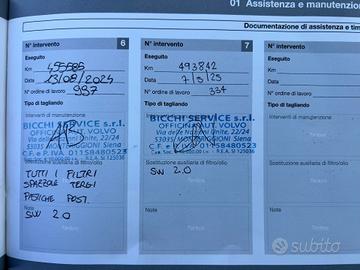 01 Assistenza e manutenzione
Documentazione di assistenza e
N° intervento 6
Eseguito
Km 455685
Data 23/08/2024
N° ordine di lavoro 987
Tipo di tagliando
Interventi di manutenzione
BICCHI SERVICE s.r.l.
OFFICINA AUT. VOLVO
Via delle Nazioni Unite, 22/24
53035 MONTERIGGIONI Siena
C.F. e P.IVA 01158480523
Sostituzione ausiliaria di filtro/olio
TUTTI I FILTRI
SPAZZOLE TERGI
PASTICHE POST.
Note
SW 2.0
Timbro
N° intervento 7
Eseguito
Km 493842
Data 7/5/25
N° ordine di lavoro 334
Tipo di tagliando
Interventi di manutenzione
BICCHI SERVICE s.r.l.
OFFICINA AUT. VOLVO
Via delle Nazioni Unite, 22/24
53035 MONTERIGGIONI Siena
C.F. e P.IVA 01158480523
Sostituzione ausiliaria di filtro/olio
SW 2.0
Note
Timbro
N° intervento
Eseguito
Km
Data
N° ordine di lavoro
Tipo di tagliando
Interventi di manutenzione
Sostituzione ausiliaria di filtro/olio
Note
subito